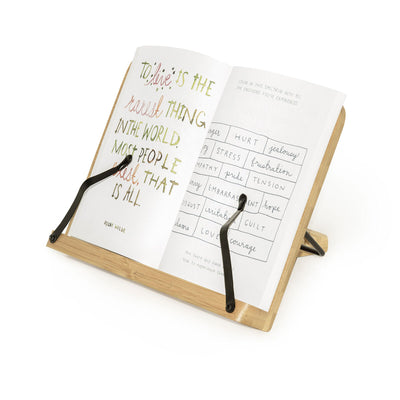 TO live IS THE
rarest THING
IN THE WORLD.
MOST PEOPLE
exist, THAT
IS ALL.
OSCAR WILDE
THE EMOTIONS YOU'VE EXPERIENCED
HURT jealousy
STRESS frustration
PATHY pride TENSION
EMBARRASS ENT hope
GUST irritati GUILT
LOVE courage